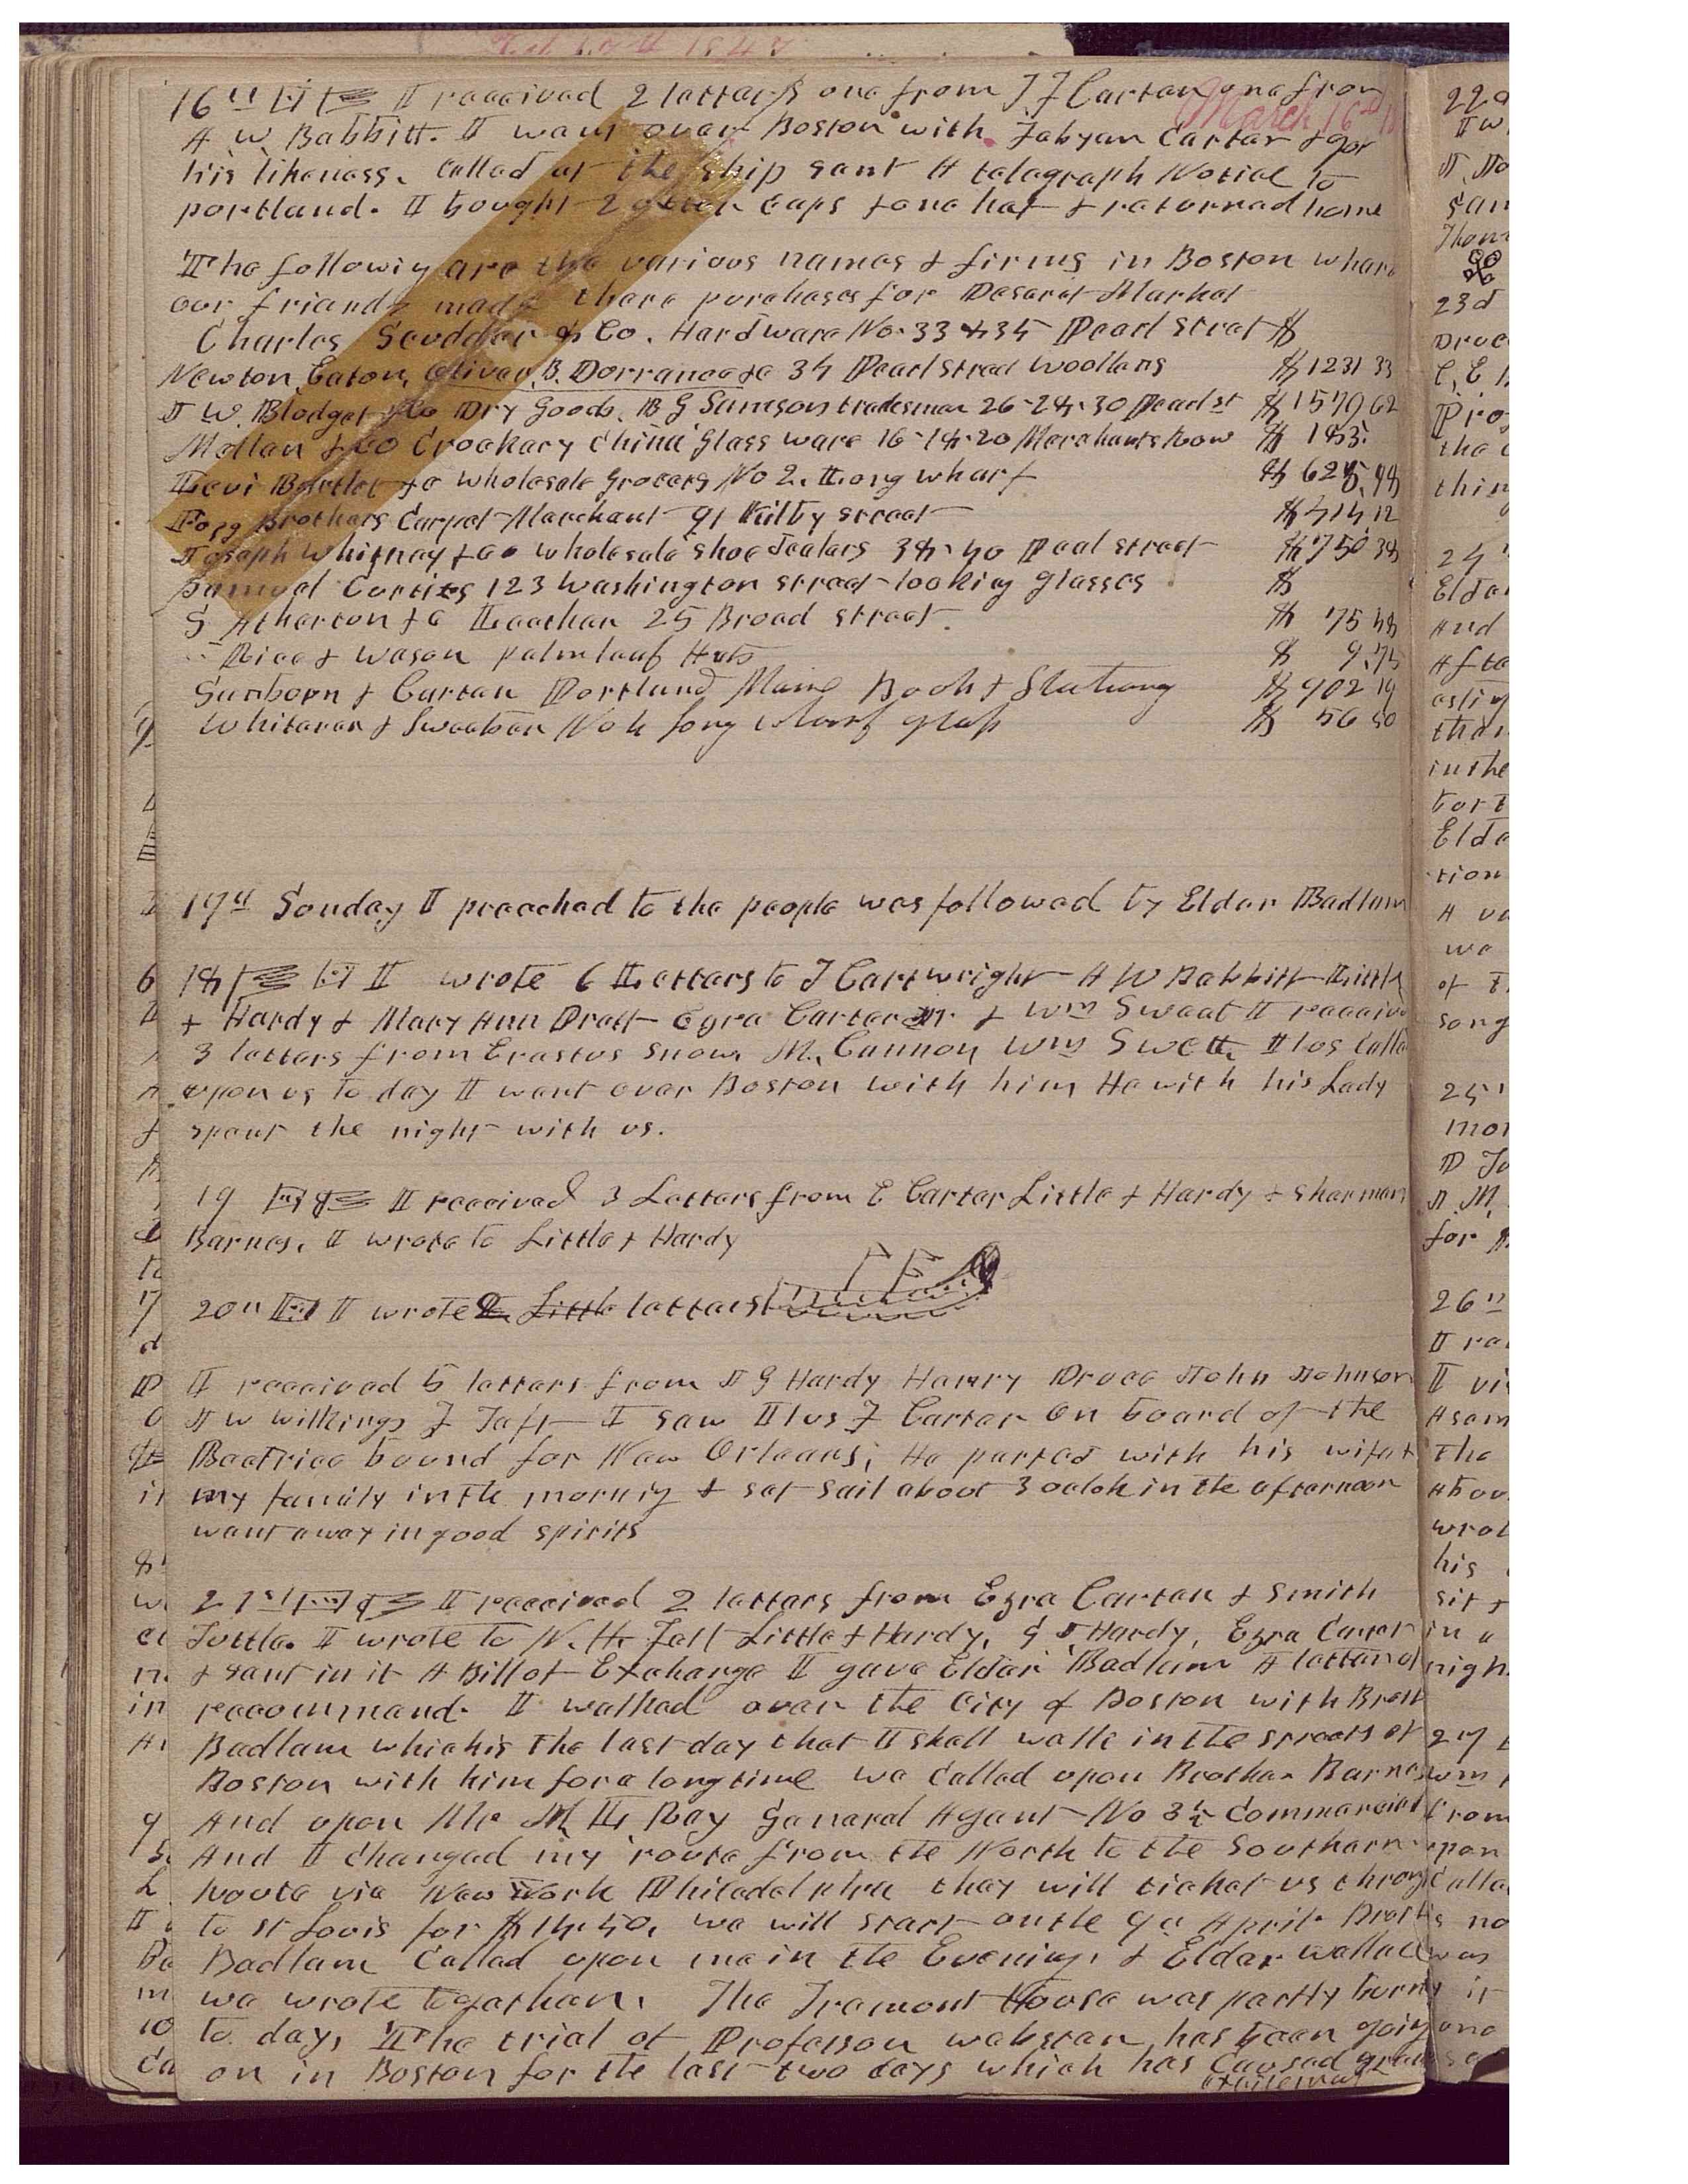 March 16th
16th I received 2 letters one from I F Carter one from
A W. Babbitt. I went over Boston with Fabyan Carter & got
his likeness. Called at the ship sent A telegraph Notice to
portland. I bought 2 otter caps & one hat & returned home
The followig are the various names & firms in Boston where
our friends made there purchases for Deseret Market
Charles Scudder & Co. Hardware No. 33 & 35 Pearl Street $
Newton, Eaton, Oliver, B. Dorrance & c 34 Pearl Street woollens $1231 33
J W. Blodget & Co Dry Goods. B G Samson tradesman 26-28-30 Pearl st $1579 62
Mellen & CO Crockery China Glass ware 16-18-20 Merchants Row $ 183.
Levi Bartlet & c wholesale Grocers No 2. Long wharf $ 628.98
Fogg Brothers Carpet Merchant 91 Kilby street $414.12
Joseph Whitney & Co wholesale shoe Dealers 38-40 Peal street $750 38
Samuel Curtise 123 Washington street looking glasses $
S Atherton & C Leather 25 Broad street. $ 75 48
Rice & Wason palmleaf Hats $ 9.75
Sanborn & Carter Portland Maine Book & Stationy $902 19
Whitarer & Sweetser No 4 long wharf glass $ 56 50
17th Sunday I preached to the people was followed by Elder Badlam
18 I wrote 6 Letters to J Cartwright A W Babbitt Little
& Hardy & Mary Ann Pratt Ezra Carter Jr. & Wm Sweat I received
3 letters from Erastus Snow, M. Cannon Wm Swett. Ilos Called
upon us to day I went over Boston with him He with his Lady
spent the night with us.
19 I received 3 Letters from E Carter Little & Hardy & Sherman
Barnes. I wrote to Little & Hardy
20th I wrote 2 Little letters
I received 5 letters from J G Hardy Harry Druce John Johnson
J W Wilkings F Taft I saw Ilus F Carter on board of the
Beatrice bound for New Orleans, He parted with his wife &
my family in the mornig & set sail about 3 oclok in the afternoon
went away in good spirits
21st I received 2 letters from Ezra Carter & Smith
Tuttle. I wrote to N. H. Felt Little & Hardy, G J Hardy, Ezra Carter
& sent in it A Bill of Exchange I gave Elder Badlam A letter of
recommend. I walked over the City of Boston with Brother
Badlam which is the last day that I shall walk in the streets of
Boston with him for a long time we called upon Brother Barnes
And upon Mr M L Ray General Agent No 3½ Commercial
And I changed my route from the North to the Southern
Route via New York Philadelphia they will ticket us through
to st Louis for $14.50. we will start on the 9th April. Brother
Badlam Called upon me in the Evening, & Elder Wallace
we wrote together. The Tremont House was partly burnt
to day, The trial of Professor webster has been going
on in Boston for the last two days which has caused great
excitement